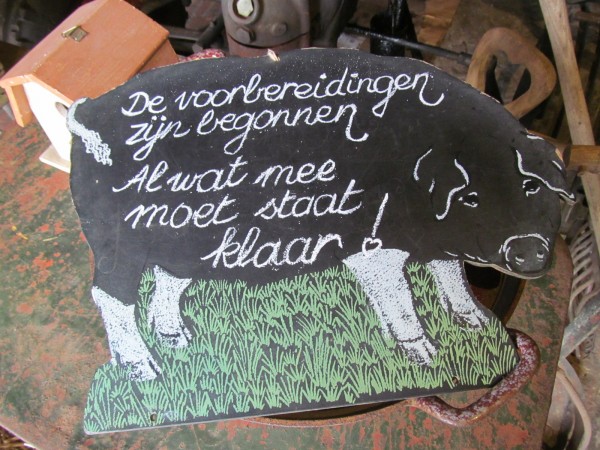 De voorbereidingen
zijn begonnen
Al wat mee
moet staat
klaar!